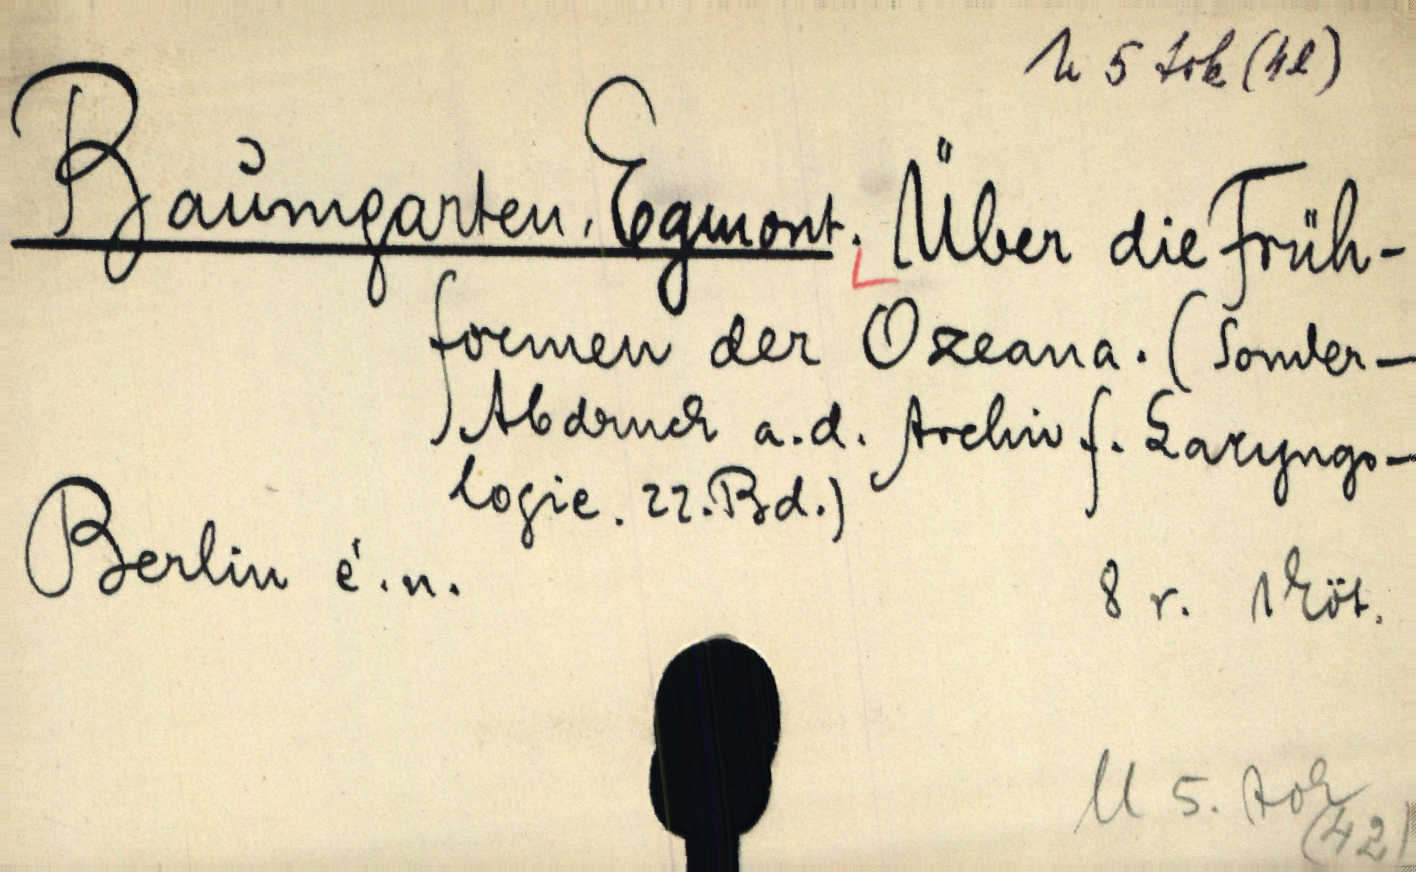 U 5 tok (42)
Baumgarten, Egmont. Über die Früh-
formen der Ozeana. (Sonder-
Abdruck a. d. Archiv f. Laryngo-
logie. 22. Bd.)
Berlin é. n.
8 r. Köt.
U 5. tok
(42)